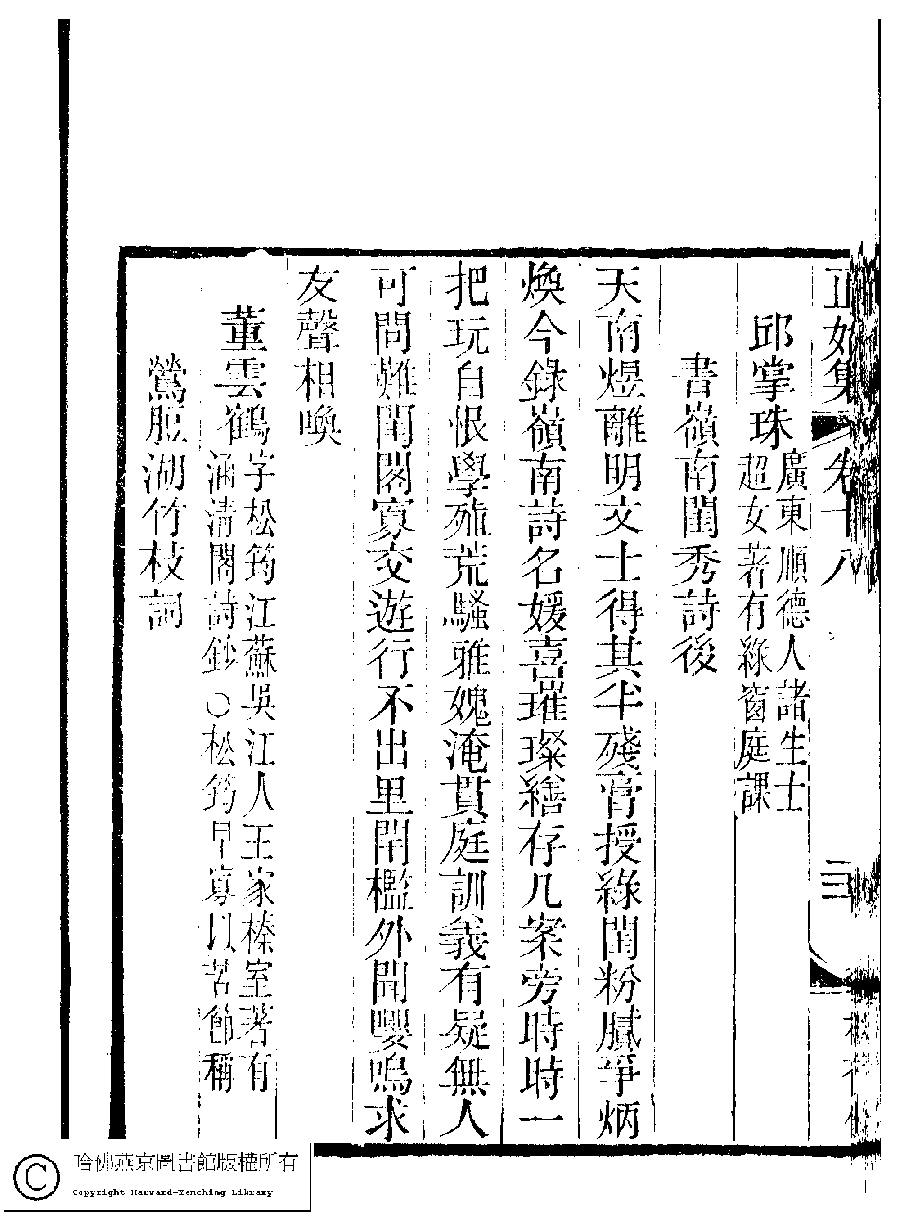 正始集 卷十八 三
邱掌珠 廣東順德人諸生士
超女著有綠窗庭課
書嶺南閨秀詩後
天南煜離明文士得其半殘膏授綠閨粉膩爭炳
煥今錄嶺南詩名媛喜璀璨繕存几案旁時時一
把玩自恨學殖荒騷雅媿淹貫庭訓義有疑無人
可問難閨閣寡交遊行不出里閈檻外聞嚶鳴求
友聲相喚
董雲鶴 字松筠江蘇吳江人王家榛室著有
涵清閣詩鈔○松筠早寡以苦節稱
鶯脰湖竹枝詞
哈佛燕京圖書館版權所有
Copyright Harvard-Yenching Library